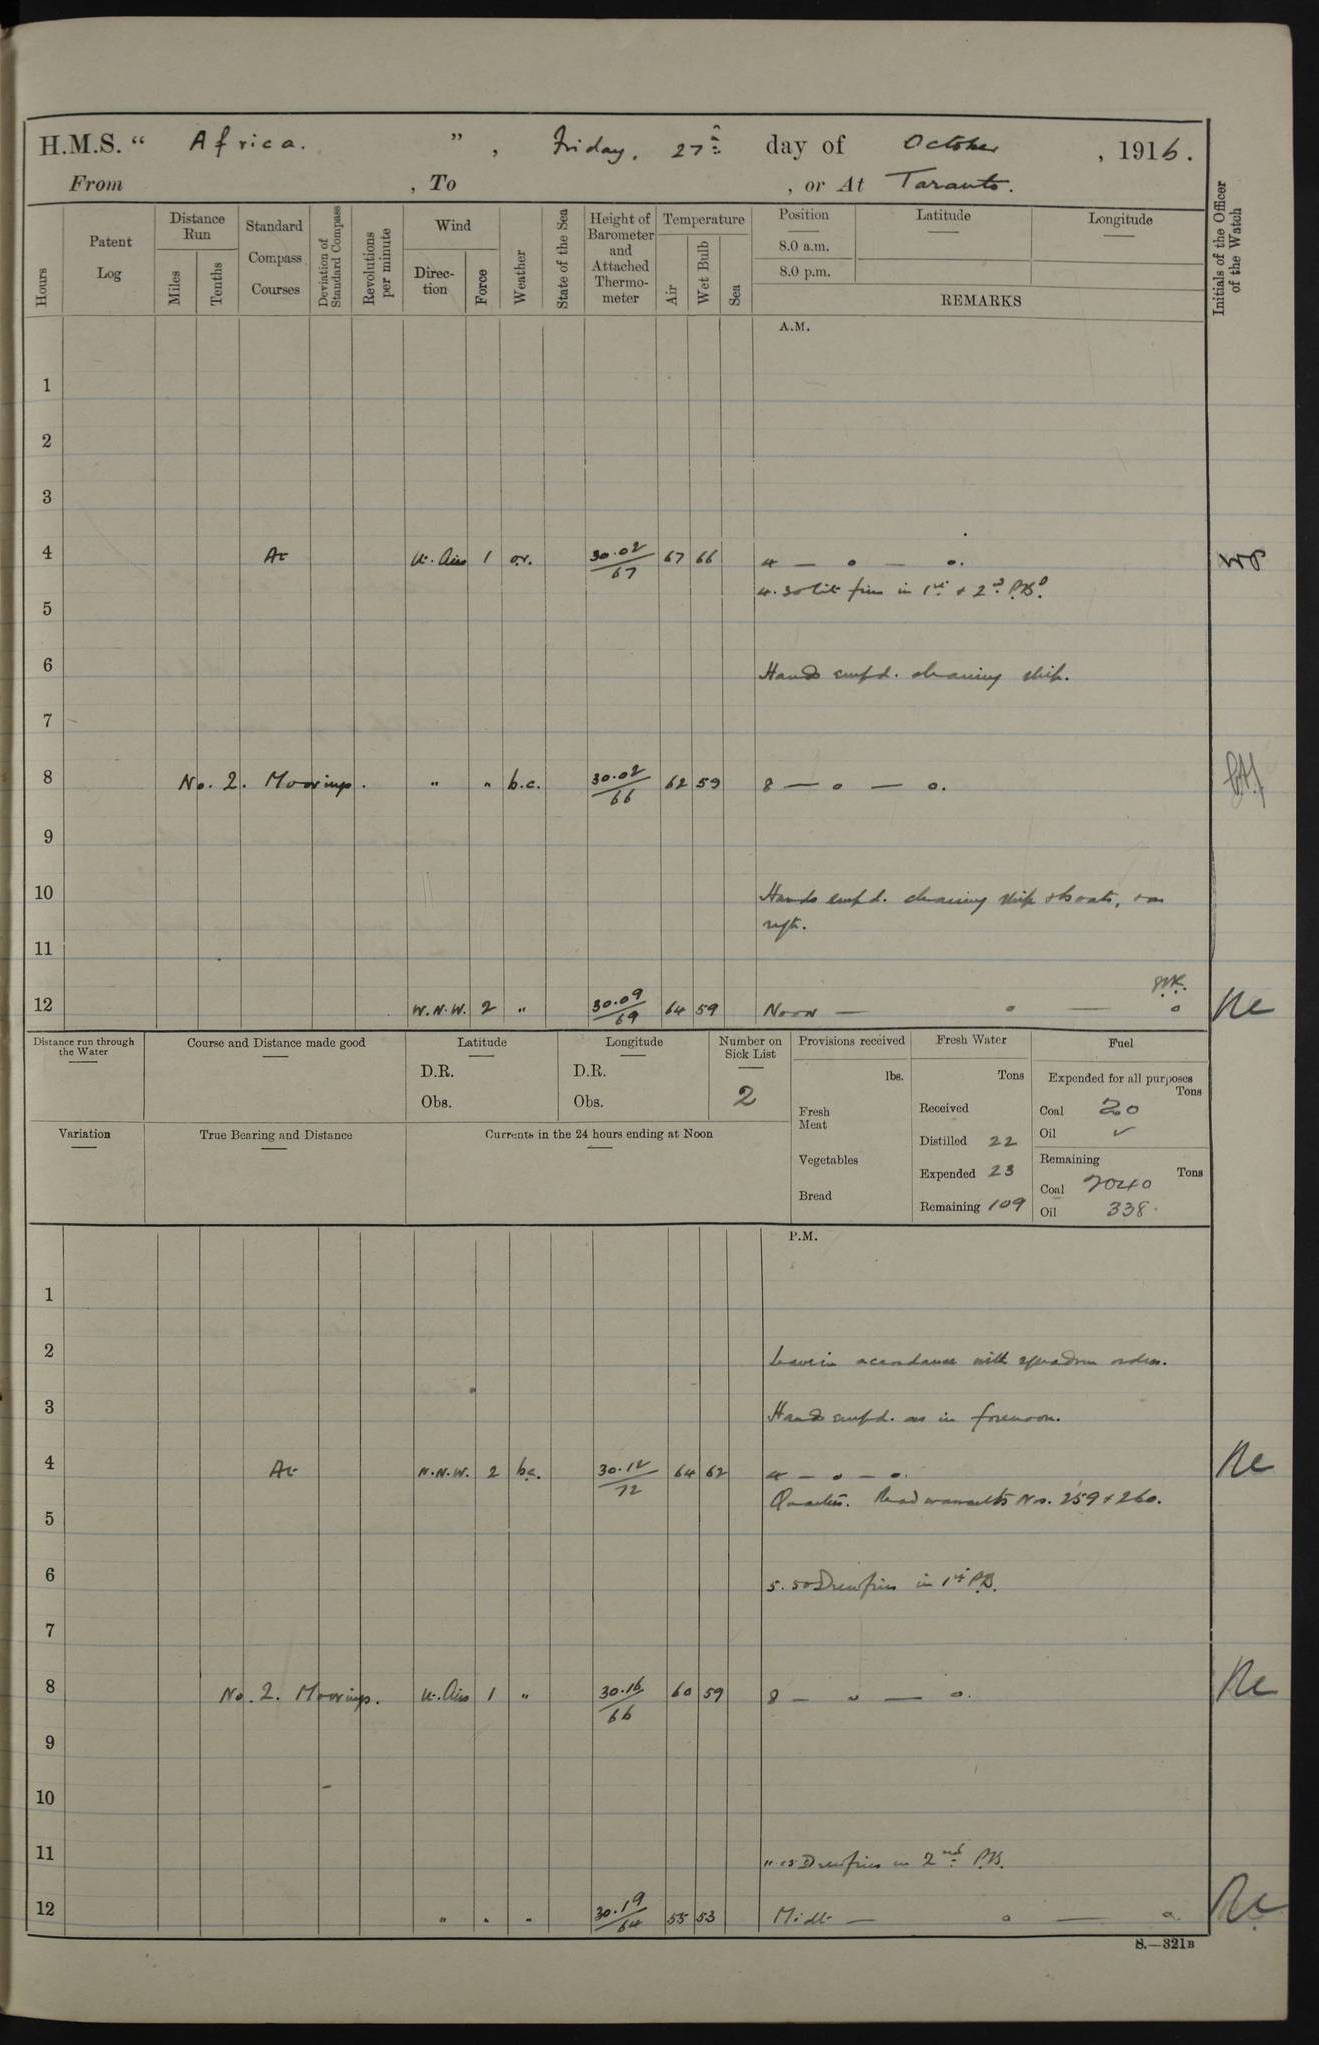 H.M.S. “ Africa. ” , Friday, 27th day of October , 1916.
From , To , or At Taranto.
Hours
Patent Log
Distance Run
Miles
Tenths
Standard Compass Courses
Deviation of Standard Compass
Revolutions per minute
Wind
Direc-tion
Force
Weather
State of the Sea
Height of Barometer and Attached Thermo-meter
Temperature
Air
Wet Bulb
Sea
Position
8.0 a.m.
8.0 p.m.
Latitude
Longitude
REMARKS
Initials of the Officer of the Watch
A.M.
1
2
3
4 At Lt. Airs 1 o.r. 30.02/67 67 66 4 — o — o.
4.30 Lit fires in 1st & 2nd P.Bs.
5
6 Hands empd. cleaning ship.
7
8 No. 2. Moorings. " " b.c. 30.02/66 62 59 8 — o — o.
9
10 Hands empd. cleaning ship & boats, & as
reqte.
11
12 W.N.W. 2 " 30.09/69 64 59 Noon — o — o
Distance run through the Water
Course and Distance made good
Latitude
D.R.
Obs.
Longitude
D.R.
Obs.
Number on Sick List
2
Provisions received
lbs.
Fresh Meat
Vegetables
Bread
Fresh Water
Tons
Received
Distilled 22
Expended 23
Remaining 109
Fuel
Expended for all purposes
Tons
Coal 20
Oil ✓
Remaining
Tons
Coal 2040
Oil 338.
Variation
True Bearing and Distance
Currents in the 24 hours ending at Noon
P.M.
1
2 Leave in accordance with squadron orders.
3 Hands empd. as in forenoon.
4 At N.N.W. 2 b.c. 30.12/72 64 62 4 — o — o.
Quarters. Read warrants Nos. 259 & 260.
5
6 5.50 Drew fires in 1st P.B.
7
8 No. 2. Moorings. Lt. Airs 1 " 30.16/66 60 59 8 — o — o.
9
10
11 11.15 Drew fires in 2nd P.B.
12 " " " 30.19/64 55 53 Midt — o — o.
S.—321B